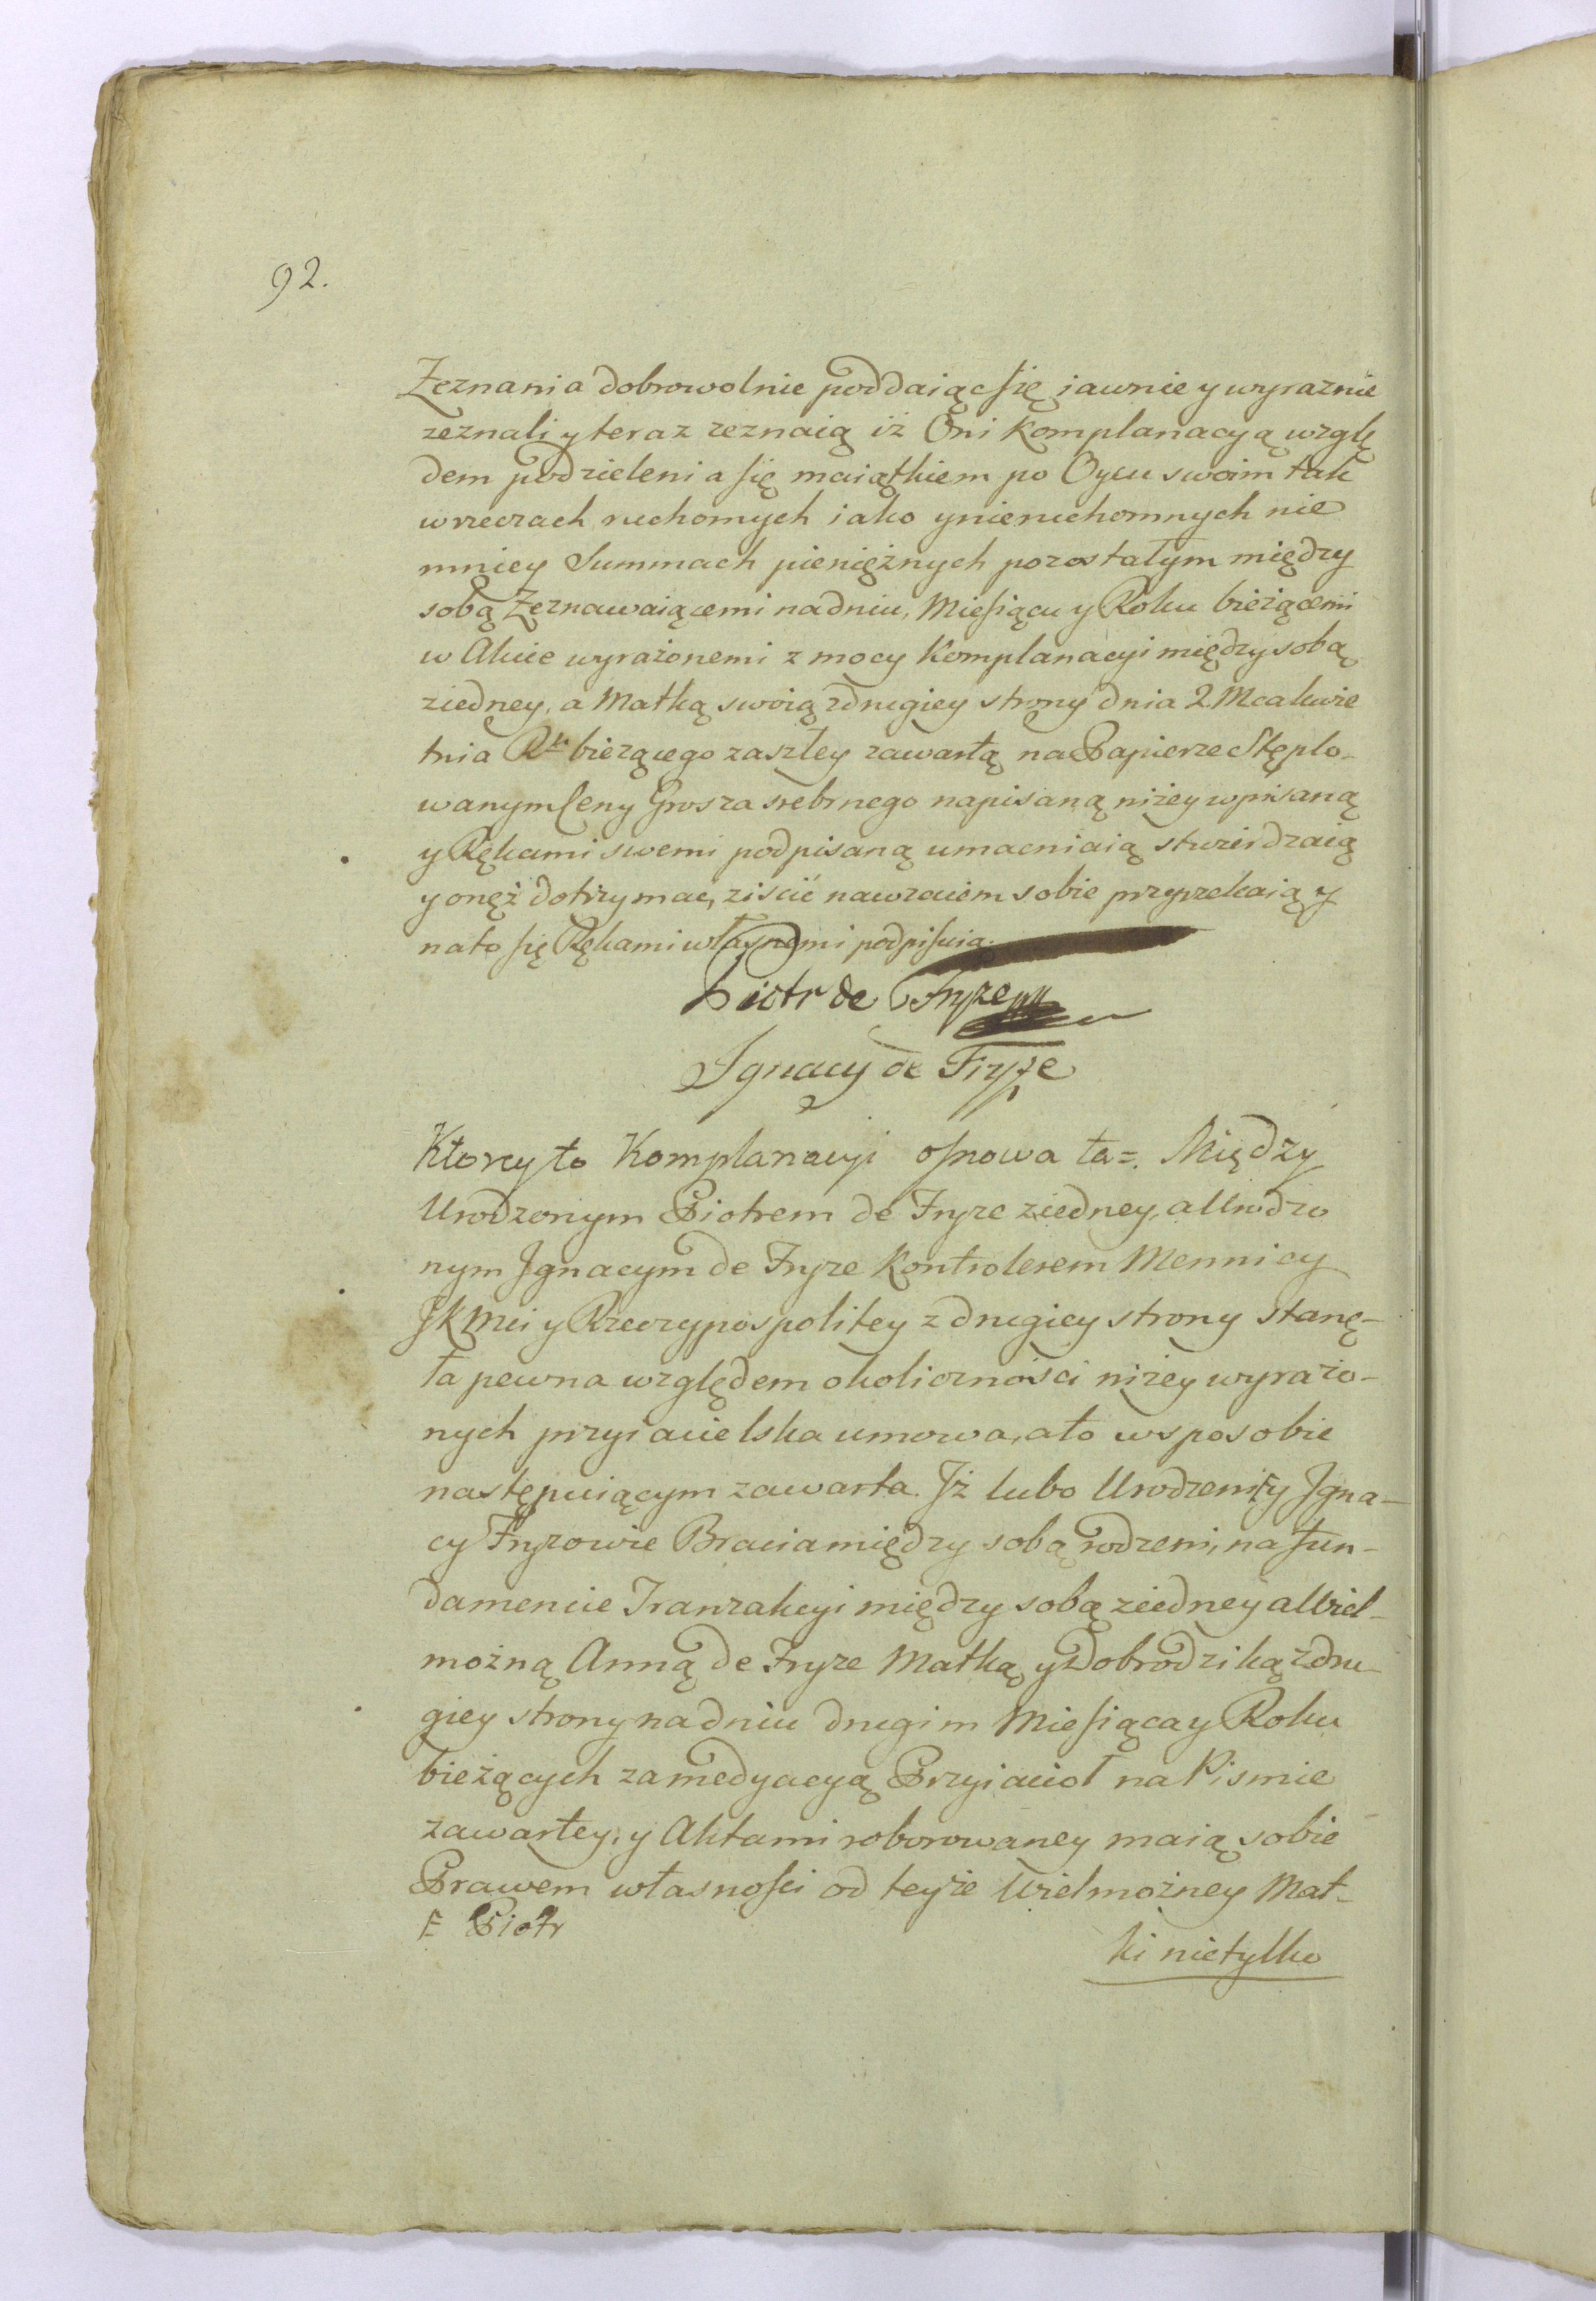 92.
Zeznania dobrowolnie poddaiąc się iawnie y wyraznie
zeznali y teraz zeznaią iż Oni Komplanacyą wzglę
dem podzielenia się maiątkiem po Oycu swoim tak
w rzeczach ruchomych iako y nieruchomnych nie
mniey Summach pieniężnych pozostałym między
sobą Zeznawaiącemi na dniu, Miesiącu y Roku bieżącemi
w Akcie wyrażonemi z mocy Komplanacyi między sobą
z iedney, a Matką swoią z drugiey strony dnia 2 Mca kwie
tnia Rku bieżącego zaszłey zawartą na Papierze Stęplo-
wanym Ceny Grosza srebrnego napisaną niżey wpisaną
y Rękami swemi podpisaną umacniaią stwierdzaią
y onęż dotrzymać, ziścić nawzaiem sobie przyrzekaią y
na to się Rękami własnemi podpisuią.
Piotr de Fryze mp
Ignacy de Fryze
Ktorey to Komplanacyi osnowa ta =. Między
Urodzonym Piotrem de Fryze z iedney, a Urodzo
nym Ignacym de Fryze Kontrolerem Mennicy
JKMci y Rzeczypospolitey z drugiey strony stanę-
ła pewna względem okoliczności niżey wyrażo-
nych przyiacielska umowa, a to w sposobie
następuiącym zawarta. Iż lubo Urodzeni F y Igna-
cy Fryzowie Bracia między sobą rodzeni, na fun-
damencie Tranzakcyi między sobą z iedney a Wiel-
możną Anną de Fryze Matką y Dobrodziką z dru-
giey strony na dniu drugim Miesiąca y Roku
bieżących za medyacyą Przyiacioł na Pismie
zawartey, y Aktami roborowaney maią sobie
Prawem własności od teyże Wielmożney Mat-
F Piotr
ki nietylko